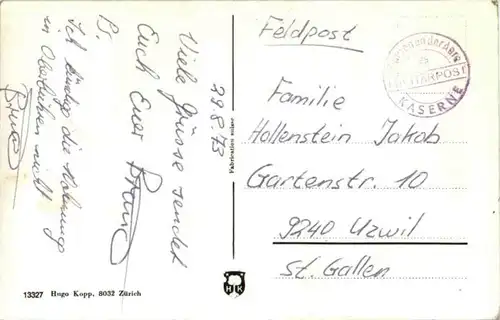 29.8.73
Viele Grüsse sendet
Euch Euer Bruno
Ps.
Ich kündige die Wohnung
in Oberbüren nicht
Bruno
Fabrication suisse
Feldpost
MILITÄRPOST
KASERNE
Familie
Hollenstein Jakob
Gartenstr. 10
9240 Uzwil
St. Gallen
HK
13327 Hugo Kopp, 8032 Zürich